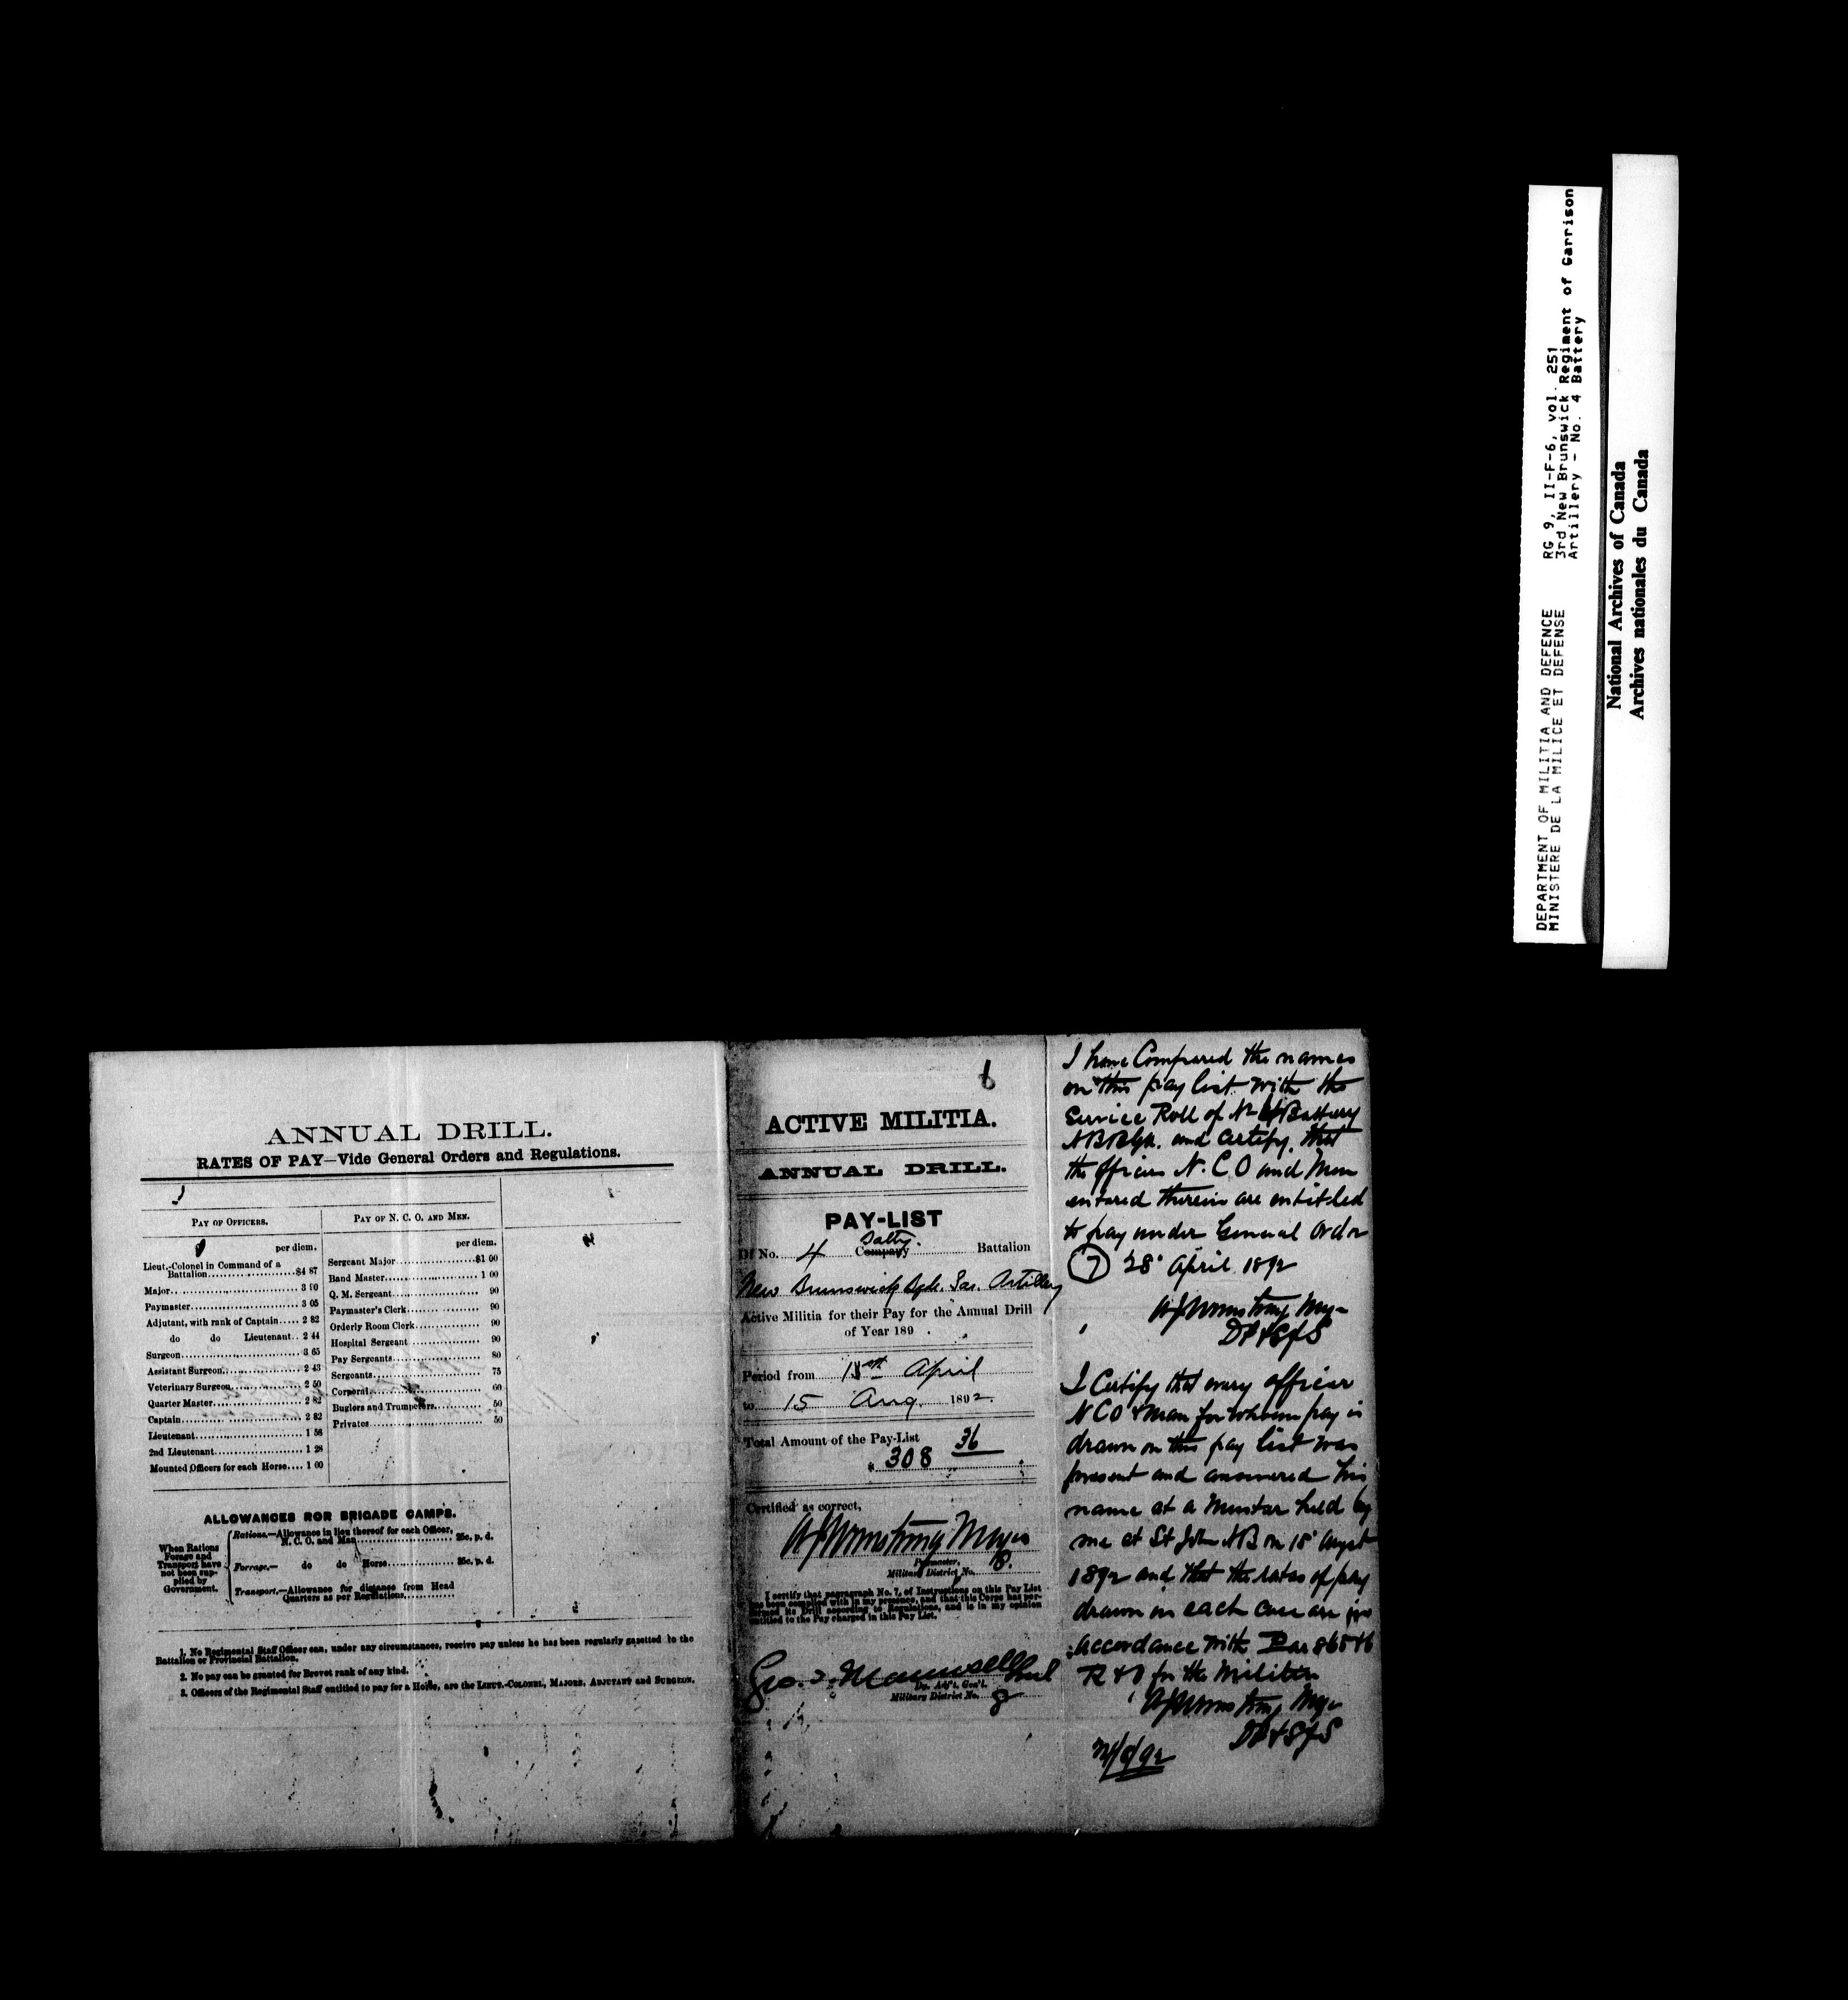 DEPARTMENT OF MILITIA AND DEFENCE
MINISTERE DE LA MILICE ET DEFENSE
RG 9, II-F-6, vol. 251
3rd New Brunswick Regiment of Garrison
Artillery - No. 4 Battery
National Archives of Canada
Archives nationales du Canada
ANNUAL DRILL.
RATES OF PAY—Vide General Orders and Regulations.
PAY OF OFFICERS.
per diem.
Lieut.-Colonel in Command of a
Battalion $4 87
Major 3 90
Paymaster 3 05
Adjutant, with rank of Captain 2 82
do do Lieutenant 2 44
Surgeon 3 65
Assistant Surgeon 2 43
Veterinary Surgeon 2 50
Quarter Master 2 82
Captain 2 82
Lieutenant 1 58
2nd Lieutenant 1 28
Mounted Officers for each Horse 1 00
PAY OF N. C. O. AND MEN.
per diem.
Sergeant Major $1 00
Band Master 1 00
Q. M. Sergeant 90
Paymaster's Clerk 90
Orderly Room Clerk 90
Hospital Sergeant 90
Pay Sergeants 80
Sergeants 75
Corporal 60
Buglers and Trumpeters 50
Privates 50
ALLOWANCES ROR BRIGADE CAMPS.
When Rations
Forage and
Transport have
not been sup-
plied by
Government.
Rations.—Allowance in lieu thereof for each Officer,
N. C. O. and Man 25c. p. d.
Forrage.— do do Horse 25c. p. d.
Transport.—Allowance for distance from Head
Quarters as per Regulations
1. No Regimental Staff Officer can, under any circumstances, receive pay unless he has been regularly gazetted to the
Battalion or Provincial Battalion.
2. No pay can be granted for Brevet rank of any kind.
3. Officers of the Regimental Staff entitled to pay for a Horse, are the LIEUT.-COLONEL, MAJORS, ADJUTANT and SURGEON.
ACTIVE MILITIA.
ANNUAL DRILL.
PAY-LIST
Baty.
Of No. 4 Company Battalion
New Brunswick Bgde. Gar. Artillery
Active Militia for their Pay for the Annual Drill
of Year 189 .
Period from April
to 15 Aug. 1892.
Total Amount of the Pay-List
$ 308 36
Certified as correct,
Armstrong Major
Paymaster,
Military District No. 8.
I certify that paragraph No. 7, of Instructions on this Pay List
has been complied with in my presence, and that this Corps has per-
formed its Drill according to Regulations, and is in my opinion
entitled to the Pay charged in this Pay List.
Geo. J. Maunsell
Dy. Adj't. Gen'l.
Military District No. 8
I have Compared the names
on this pay list with the
Service Roll of No 4 Battery
NBBGA. and Certify that
the officers N.C.O and Men
entered therein are entitled
to pay under General Order
(7) 28 April 1892
Armstrong Major
I Certify that every officer
NCO & man for whom pay is
drawn on this pay list was
present and answered his
name at a Muster held by
me at St John NB on 15 August
1892 and that the rates of pay
drawn in each case are in
accordance with Par
R & O for the Militia
Armstrong Major